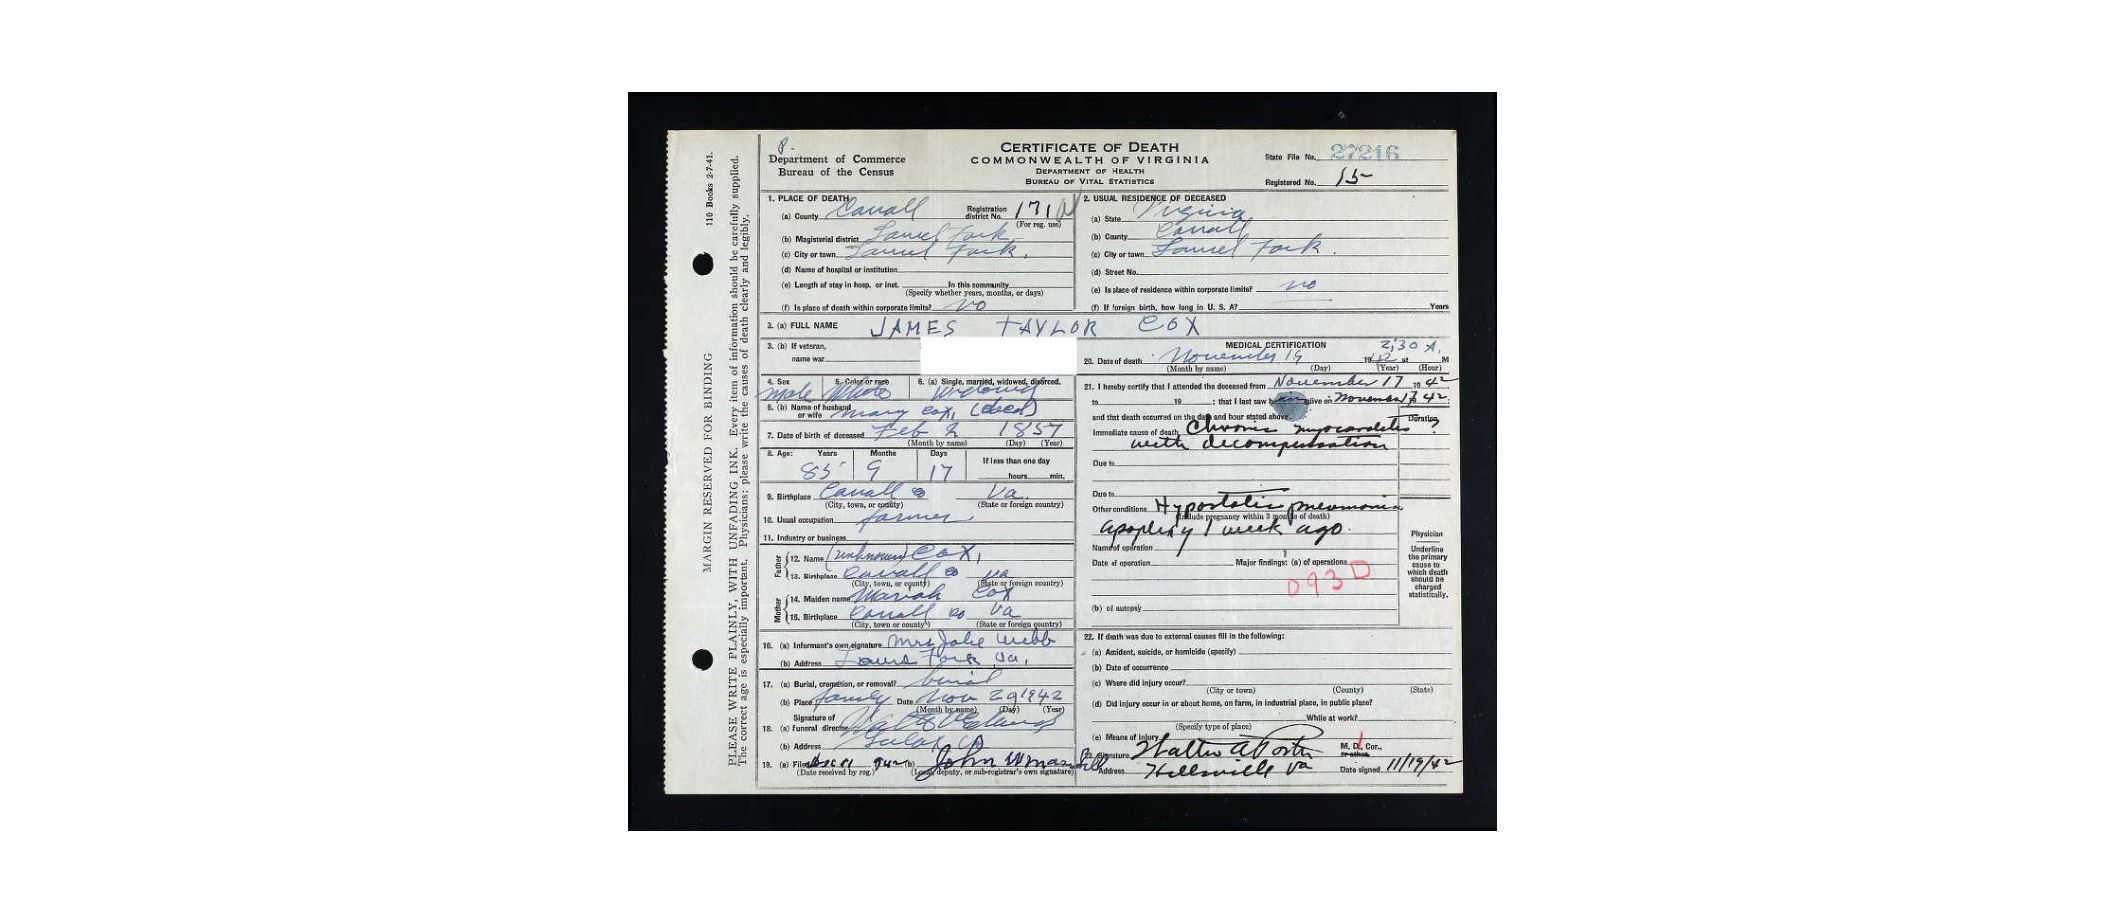 110 Books 2-7-41.
MARGIN RESERVED FOR BINDING
PLEASE WRITE PLAINLY, WITH UNFADING INK. Every item of information should be carefully supplied.
The correct age is especially important. Physicians: please write the causes of death clearly and legibly.
Department of Commerce
Bureau of the Census
CERTIFICATE OF DEATH
COMMONWEALTH OF VIRGINIA
DEPARTMENT OF HEALTH
BUREAU OF VITAL STATISTICS
State File No. 27216
Registered No. 15
1. PLACE OF DEATH
(a) County Carroll Registration district No. 171
(For reg. use)
(b) Magisterial district Laurel Fork
(c) City or town Laurel Fork.
(d) Name of hospital or institution
(e) Length of stay in hosp. or inst. In this community
(Specify whether years, months, or days)
(f) Is place of death within corporate limits? no
2. USUAL RESIDENCE OF DECEASED
(a) State Virginia
(b) County Carroll
(c) City or town Laurel Fork.
(d) Street No.
(e) Is place of residence within corporate limits? no
(f) If foreign birth, how long in U. S. A? Years
3. (a) FULL NAME JAMES TAYLOR COX
3. (b) If veteran,
name war
4. Sex 5. Color or race 6. (a) Single, married, widowed, divorced.
male White Widowed
6. (b) Name of husband
or wife Mary Cox, (dead)
7. Date of birth of deceased Feb 2 1857
(Month by name) (Day) (Year)
8. Age: Years Months Days If less than one day
85 9 17 hours min.
9. Birthplace Carroll Co Va.
(City, town, or county) (State or foreign country)
10. Usual occupation farmer
11. Industry or business
Father
12. Name (unknown) Cox,
13. Birthplace Carroll Co Va
(City, town, or county) (State or foreign country)
Mother
14. Maiden name Mariah Cox
15. Birthplace Carroll Co Va
(City, town or county) (State or foreign country)
16. (a) Informant's own signature Mrs Webb
(b) Address Laurel Fork Va,
17. (a) Burial, cremation, or removal? burial
(b) Place family Date Nov 1942
(Month by name) (Day) (Year)
Signature of
18. (a) funeral director
(b) Address
19. (a) Filed (b) John W
(Date received by reg.) (Local, deputy, or sub-registrar's own signature)
MEDICAL CERTIFICATION
20. Date of death November 19 1942 at 2;30 A. M
(Month by name) (Day) (Year) (Hour)
21. I hereby certify that I attended the deceased from November 17 1942
to 19 ; that I last saw alive on 17 42
and that death occurred on the date and hour stated above. Duration
Immediate cause of death Chronic myocarditis ?
with decompensation
Due to
Due to
Other conditions Hypostatic pneumonia
(Include pregnancy within 3 months of death)
apoplexy 1 week ago.
Name of operation
Date of operation Major findings: (a) of operations
093D
(b) of autopsy
Physician
Underline
the primary
cause to
which death
should be
charged
statistically.
22. If death was due to external causes fill in the following:
(a) Accident, suicide, or homicide (specify)
(b) Date of occurrence
(c) Where did injury occur?
(City or town) (County) (State)
(d) Did injury occur in or about home, on farm, in industrial place, in public place?
While at work?
(Specify type of place)
(e) Means of injury
23. Signature Walter A Porter M. D., Cor.,
or other.
Address Hillsville Va Date signed 11/19/42